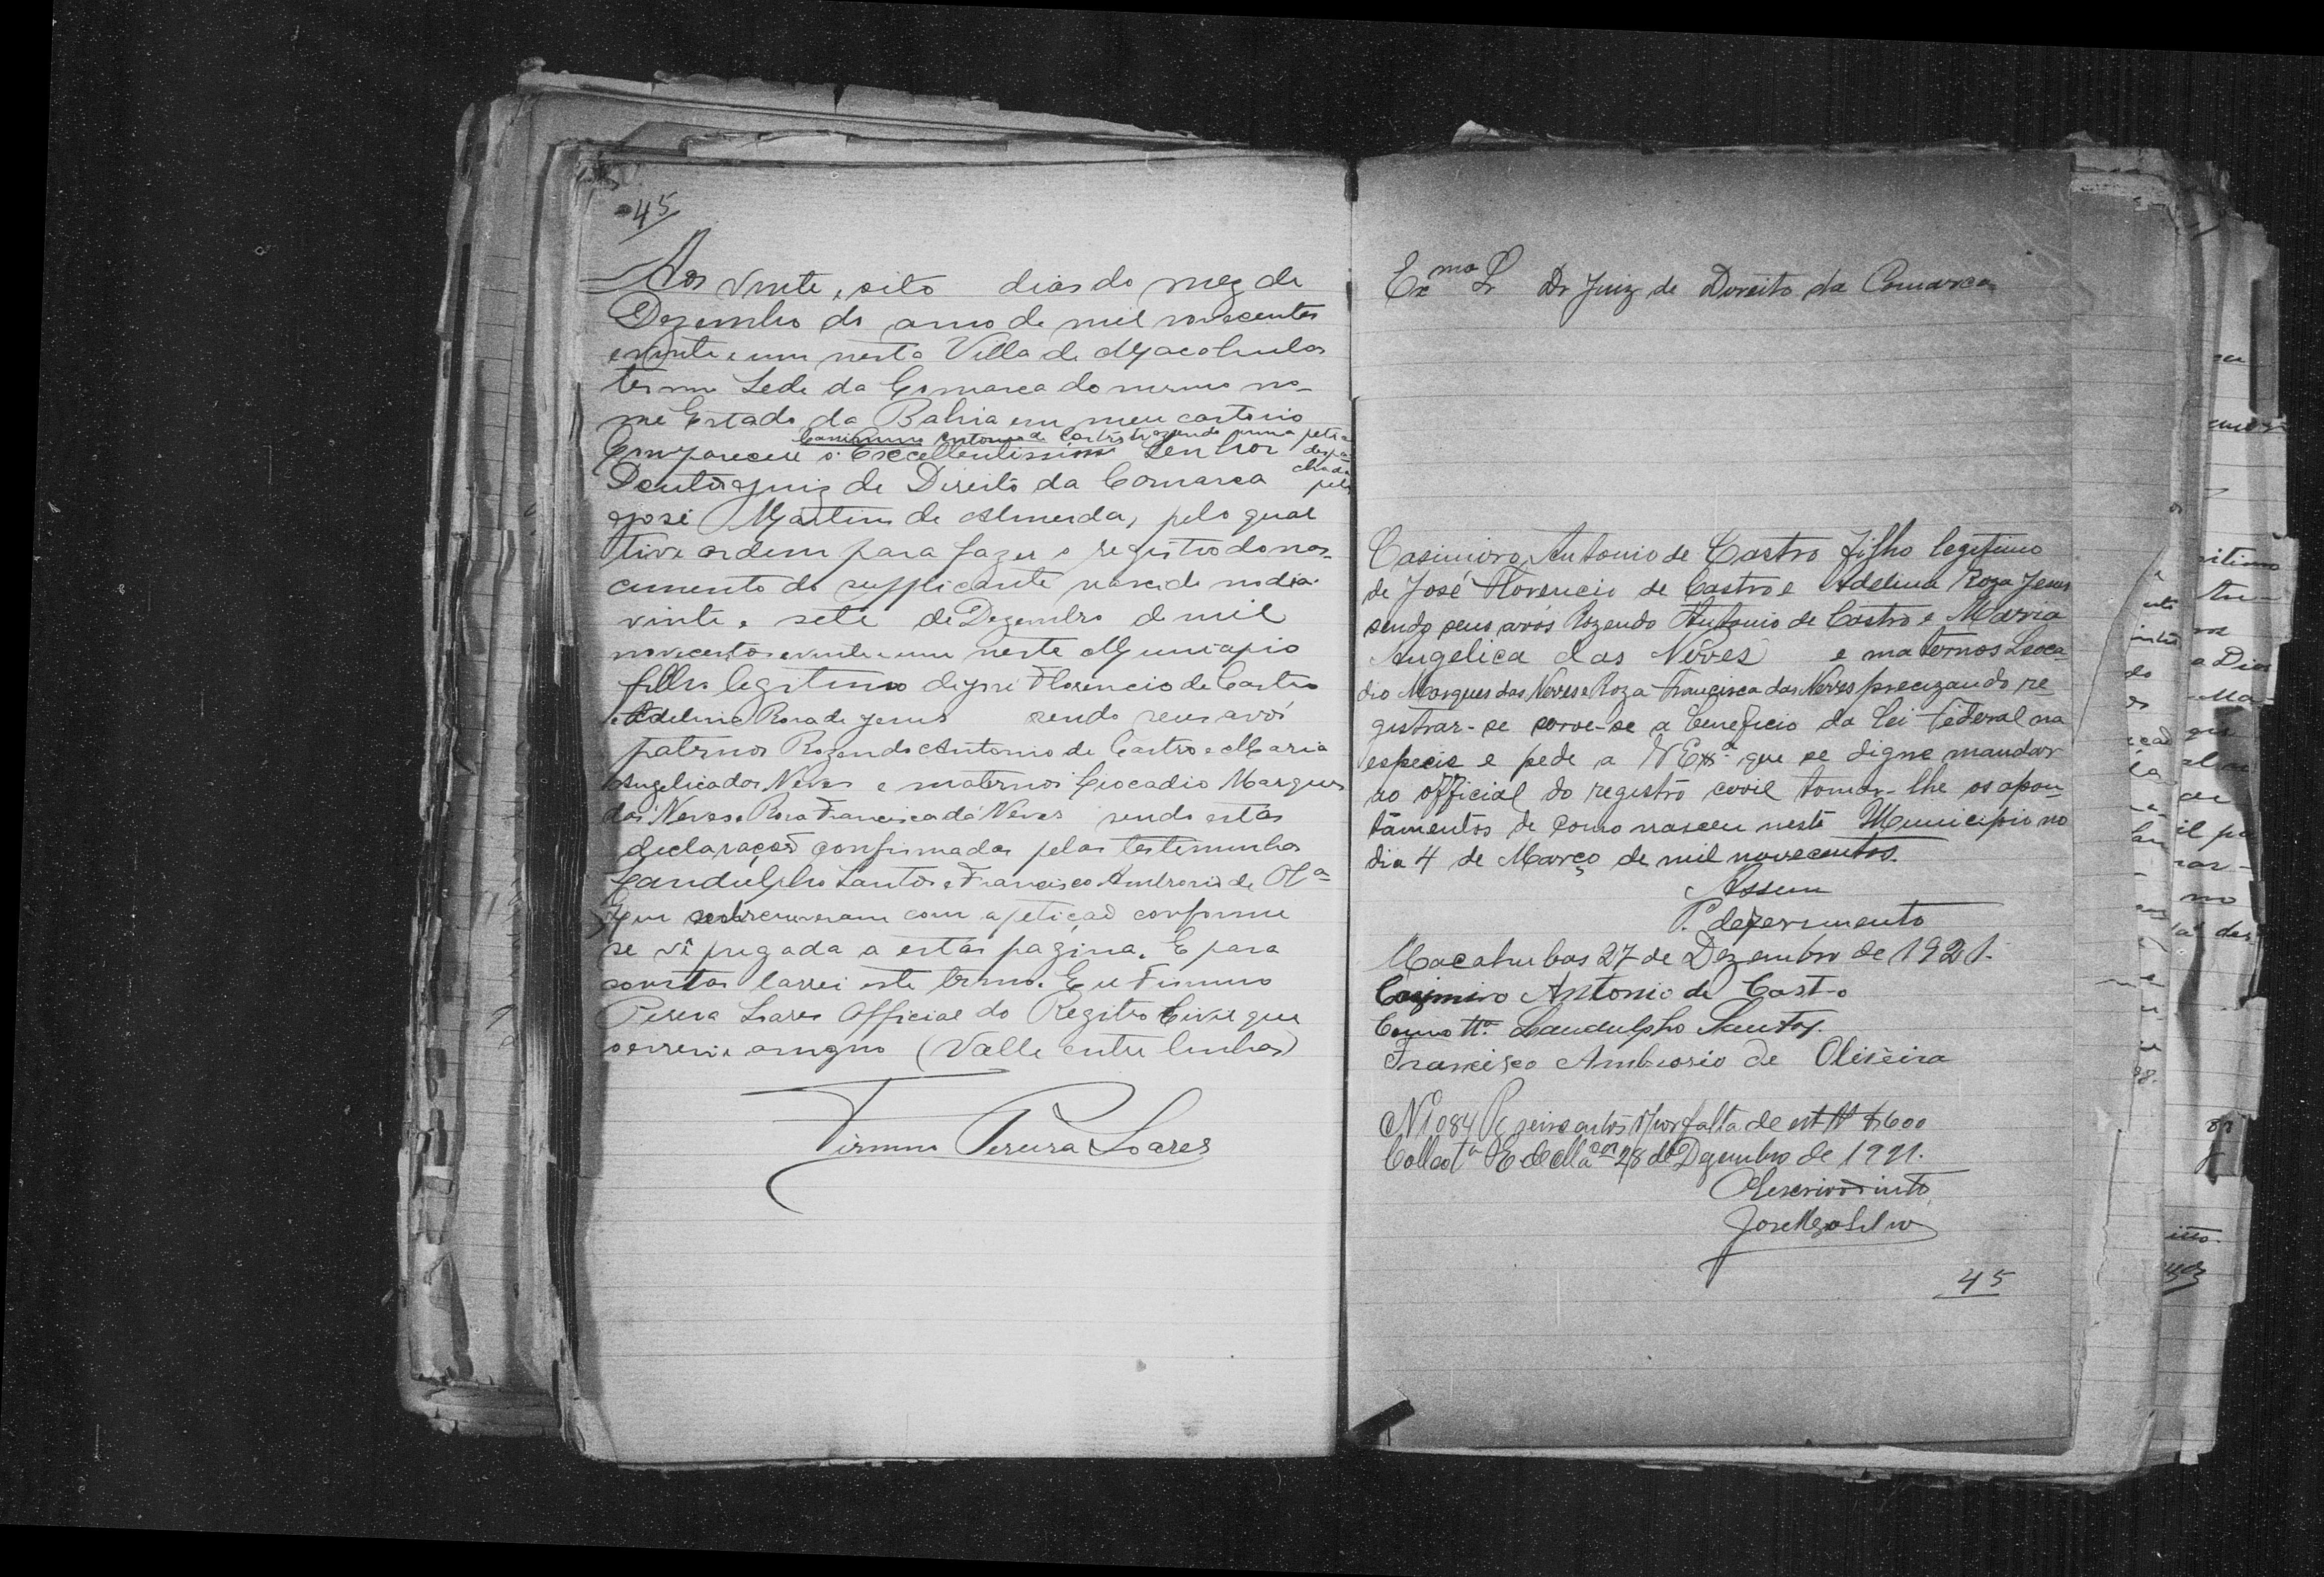 45
Aos vinte e oito dias do mez de
Dezembro do anno de mil novecentos
e vinte e um nesta Villa de Macahubas
termo Sede da Comarca do mesmo no-
me Estado da Bahia em meu cartorio
Casimiro Antonio de Castro trazendo uma peti-
Compareceu o Excellentissimo Senhor
despa-
chada
pelo
Doutor Juiz de Direito da Comarca
José Martins de Almeida, pelo qual
tive ordem para fazer o registro do nas-
cimento do supplicante nascido no dia
vinte e sete de Dezembro de mil
novecentos e vinte e um neste Municipio
filho legitimo de José Florencio de Castro
e Adelina Rosa de Jesus sendo seus avós
paternos Rozendo Antonio de Castro e Maria
Angelica das Neves e maternos Leocadio Marques
das Neves e Rosa Francisca das Neves sendo estas
declarações confirmadas pelas testemunhas
Landulpho Santos e Francisco Ambrosio de Olª
que subscreveram com a petição conforme
se vê pregada a estas pagina. E para
constar lavrei este termo. Eu Firmino
Pereira Soares Official do Registro Civil que
escrevi e assigno (Valle entre linhas)
Firmino Pereira Soares
Exmo Sr Dr Juiz de Direito da Comarca
Casimiro Antonio de Castro filho legitimo
de José Florencio de Castro e Adelina Roza Jesus
sendo seus avós Rozendo Antonio de Castro e Maria
Angelica das Neves e maternos Leoca-
dio Marques das Neves e Roza Francisca das Neves precizando re-
gistrar-se serve-se a beneficio da lei federal na
especie e pede a V Exª que se digne mandar
ao official do registro civil tomar-lhe os apon-
tamentos de como nasceu neste Municipio no
dia 4 de Março de mil novecentos.
Assim
P. deferimento
Macahubas 27 de Dezembro de 1921.
Casimiro Antonio de Castro
Como ttª Landulpho Santos.
Francisco Ambrosio de Oliveira
N 1084 Pg seiscentos rs por falta de est $600
Collectª E de Mªcas 28 de Dezembro de 1921.
O Escrivão
45